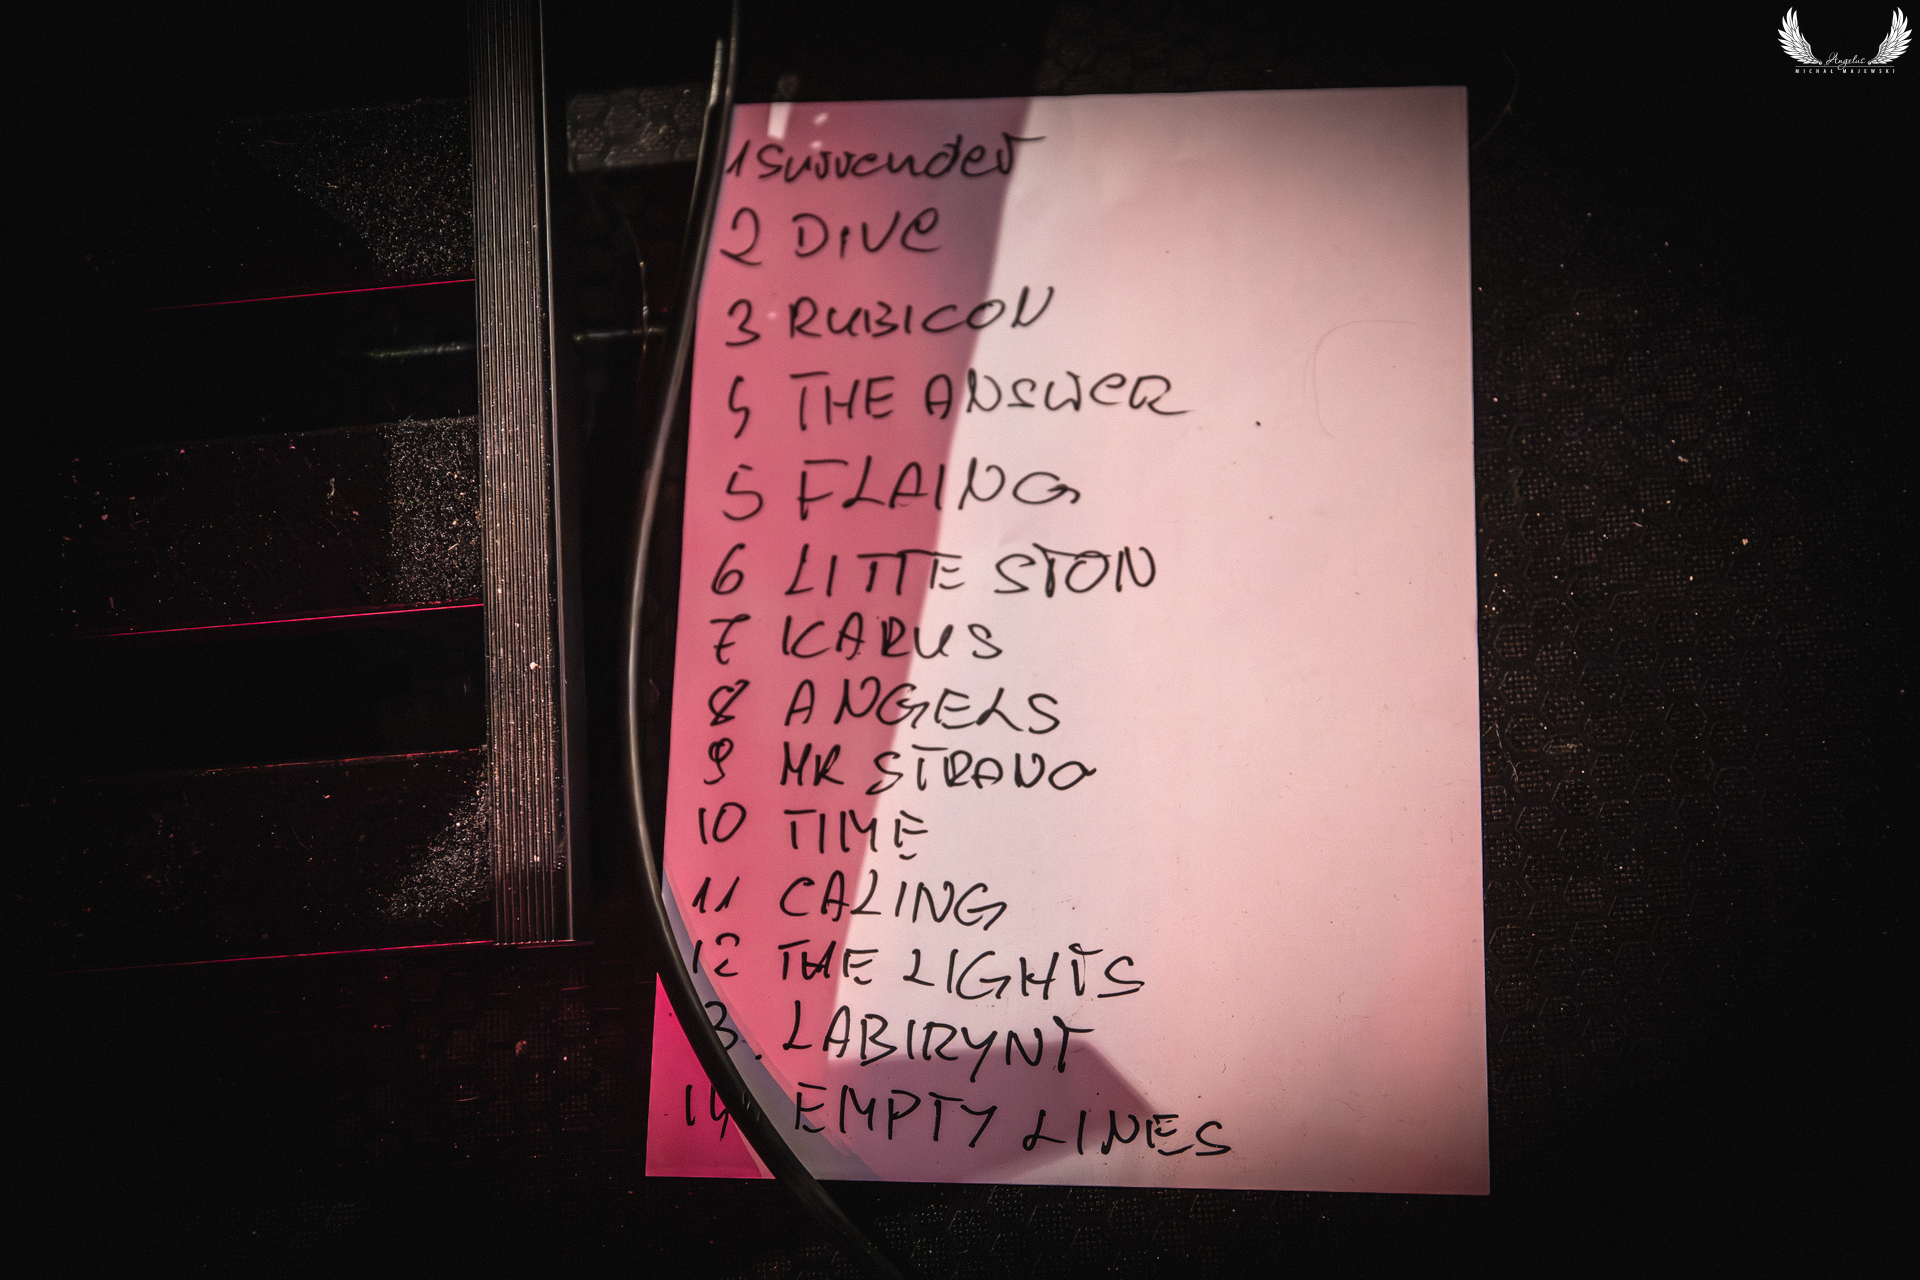 Angelus
MICHAŁ MAJEWSKI
1 Surrender
2 DIVE
3 RUBICON
4 THE ANSWER
5 FLAING
6 LITTE STON
7 ICARUS
8 ANGELS
9 MR STRANG
10 TIME
11 CALING
12 THE LIGHTS
3. LABIRYNT
14 EMPTY LINES